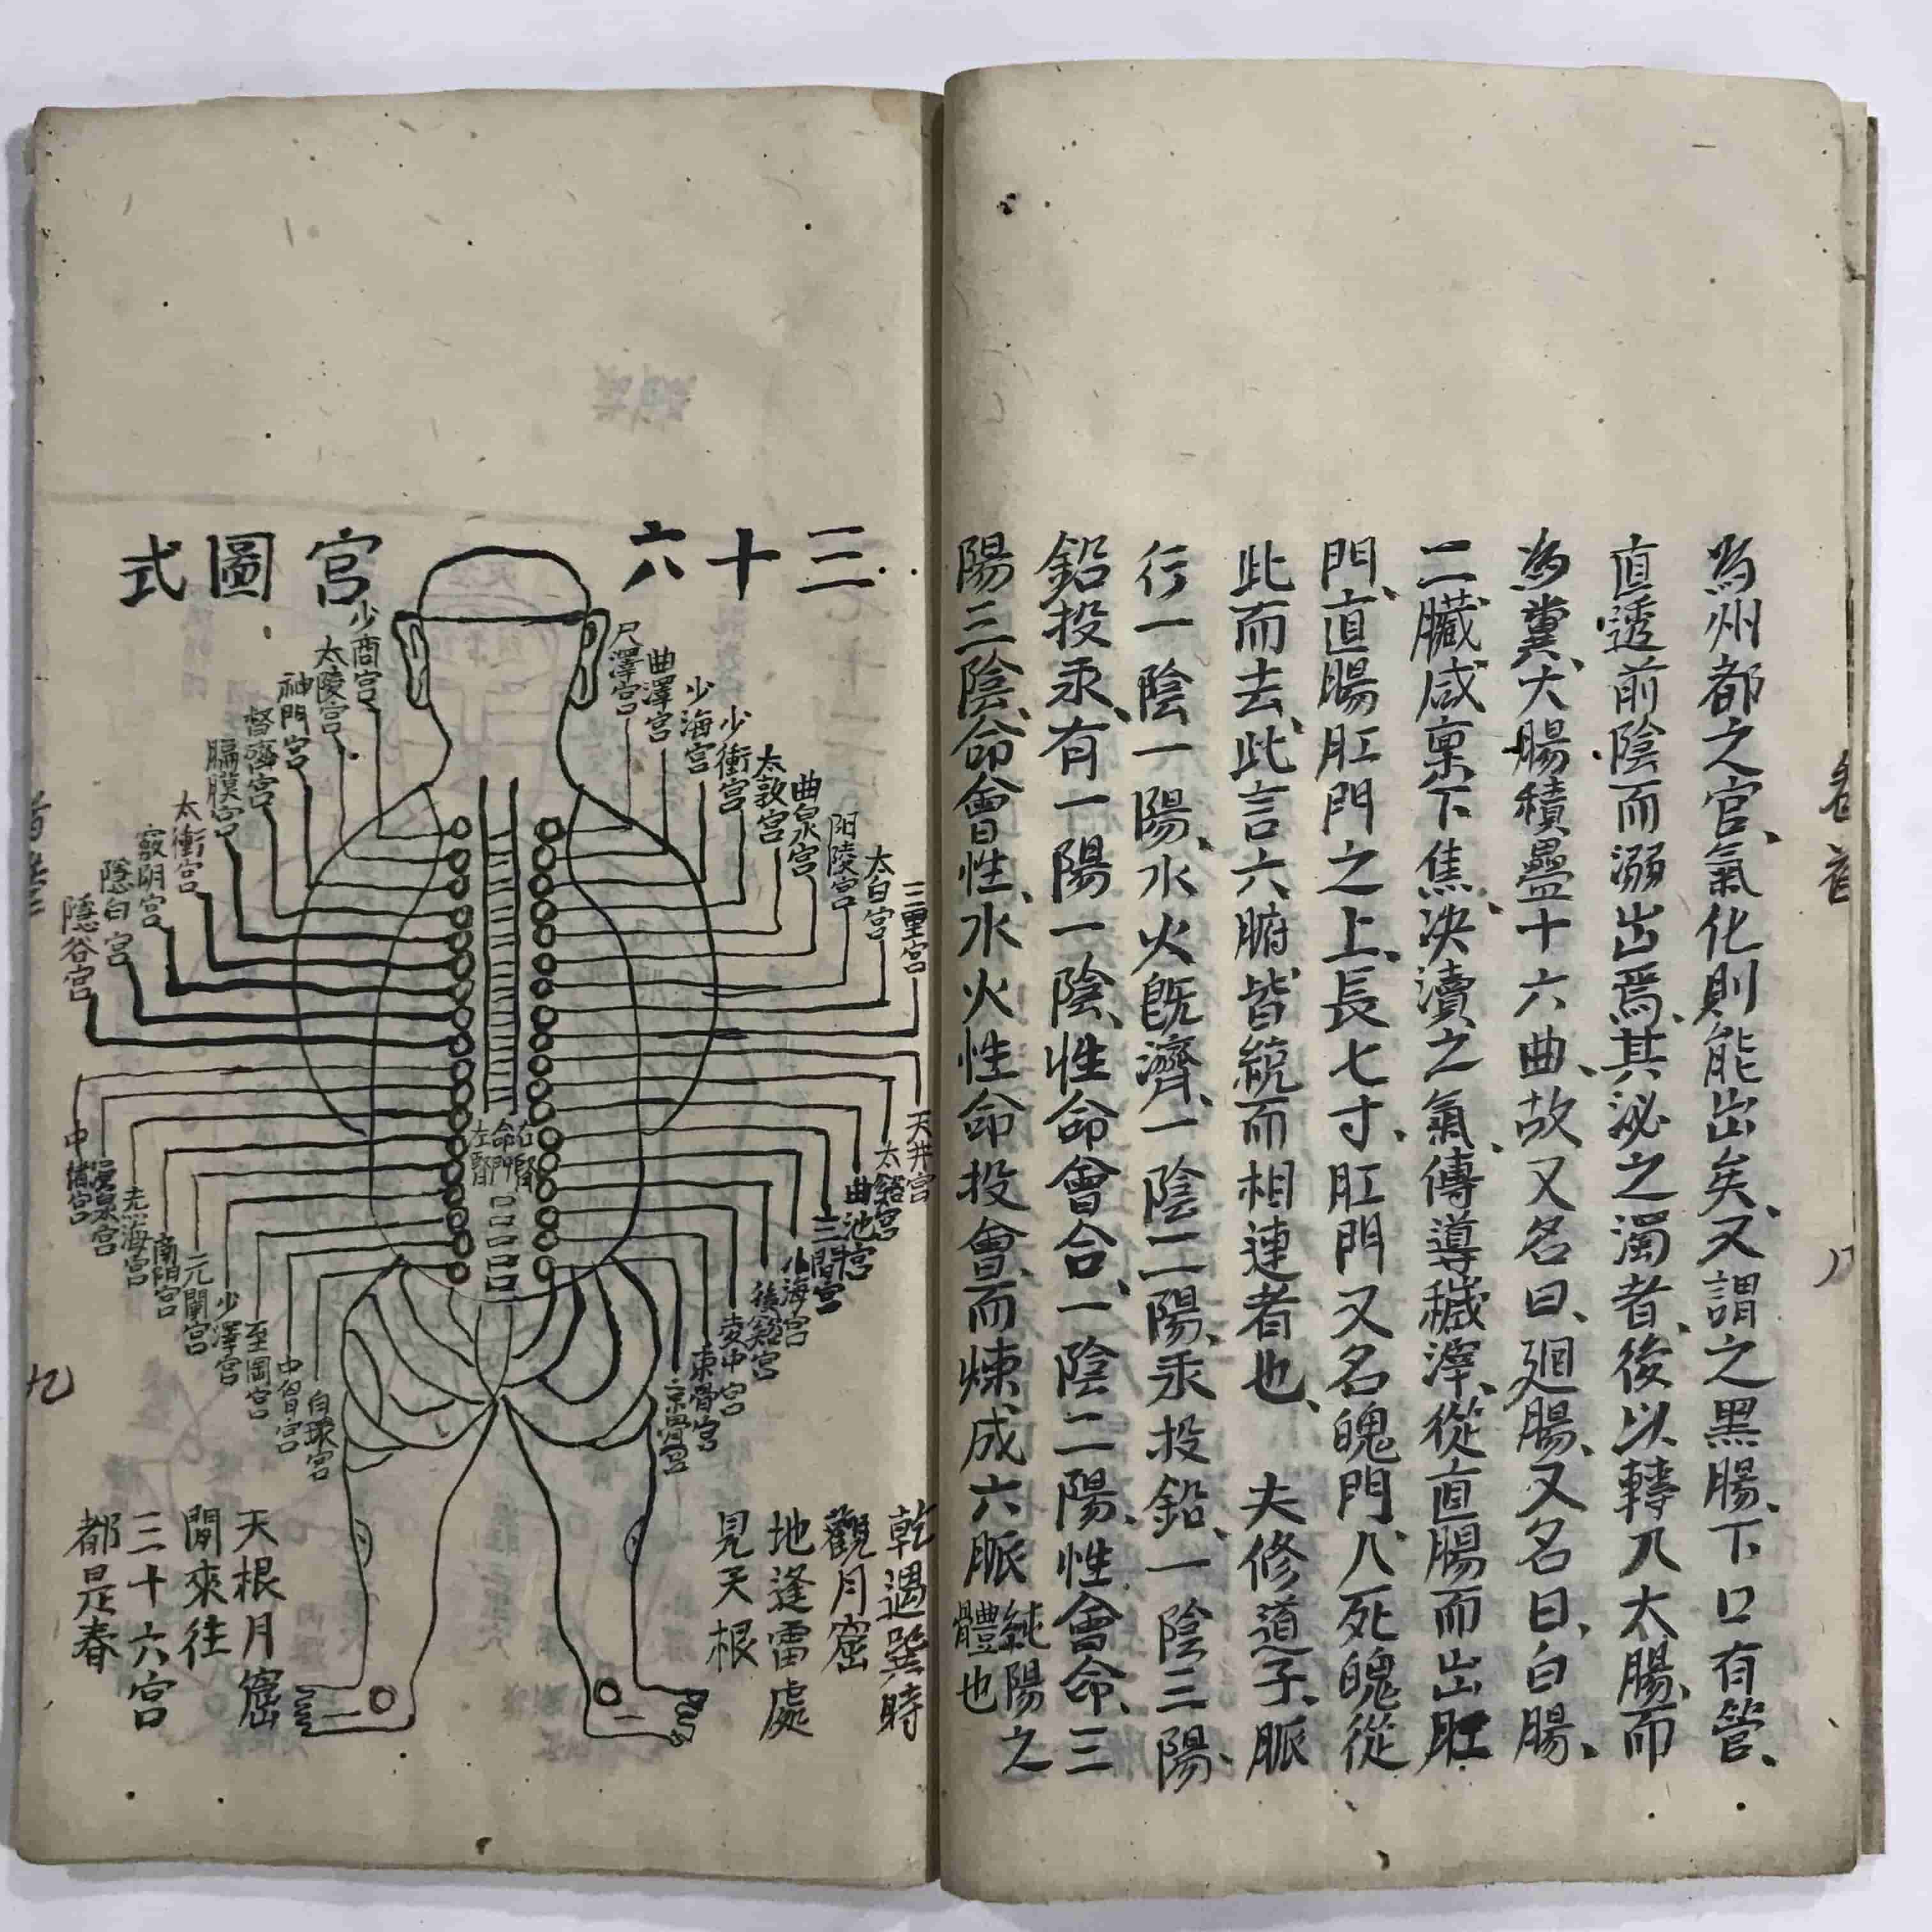 卷首
八
為州都之官、氣化則能出矣、又謂之黑腸、下口有管、
直透前陰而溺出焉、其泌之濁者、後以轉入大腸、而
為糞、大腸積疊十六曲、故又名曰、廻腸、又名曰、白腸、
二臟咸稟下焦、決瀆之氣、傳導穢滓、從直腸而出肛
門、直腸肛門之上、長七寸、肛門又名魄門、人死魄從
此而去、此言六腑、皆統而相連者也、 夫修道子、脈
行一陰一陽、水火既濟、一陰二陽、汞投鉛、一陰三陽、
鉛投汞、有一陽一陰、性命會合、一陰二陽、性會命、三
陽三陰、命會性、水火性命投會、而煉成六脈純陽之
體也
三十六宮圖式
尺澤宮
曲澤宮
少海宮
少衝宮
太敦宮
曲泉宮
阳陵宮
太白宮
三里宮
少商宮
太陵宮
神門宮
督齊宮
膈膜宮
太衝宮
竅明宮
隱白宮
隱谷宮
左腎
命門
右腎
天井宮
太谿宮
曲池宮
三間宮
小海宮
後谿宮
委中宮
束骨宮
京骨宮
湧泉宮
南阳宮
元關宮
少澤宮
中宮
白環宮
乾遇巽時
觀月窟
地逢雷處
見天根
天根月窟
閒來往
三十六宮
都是春
九